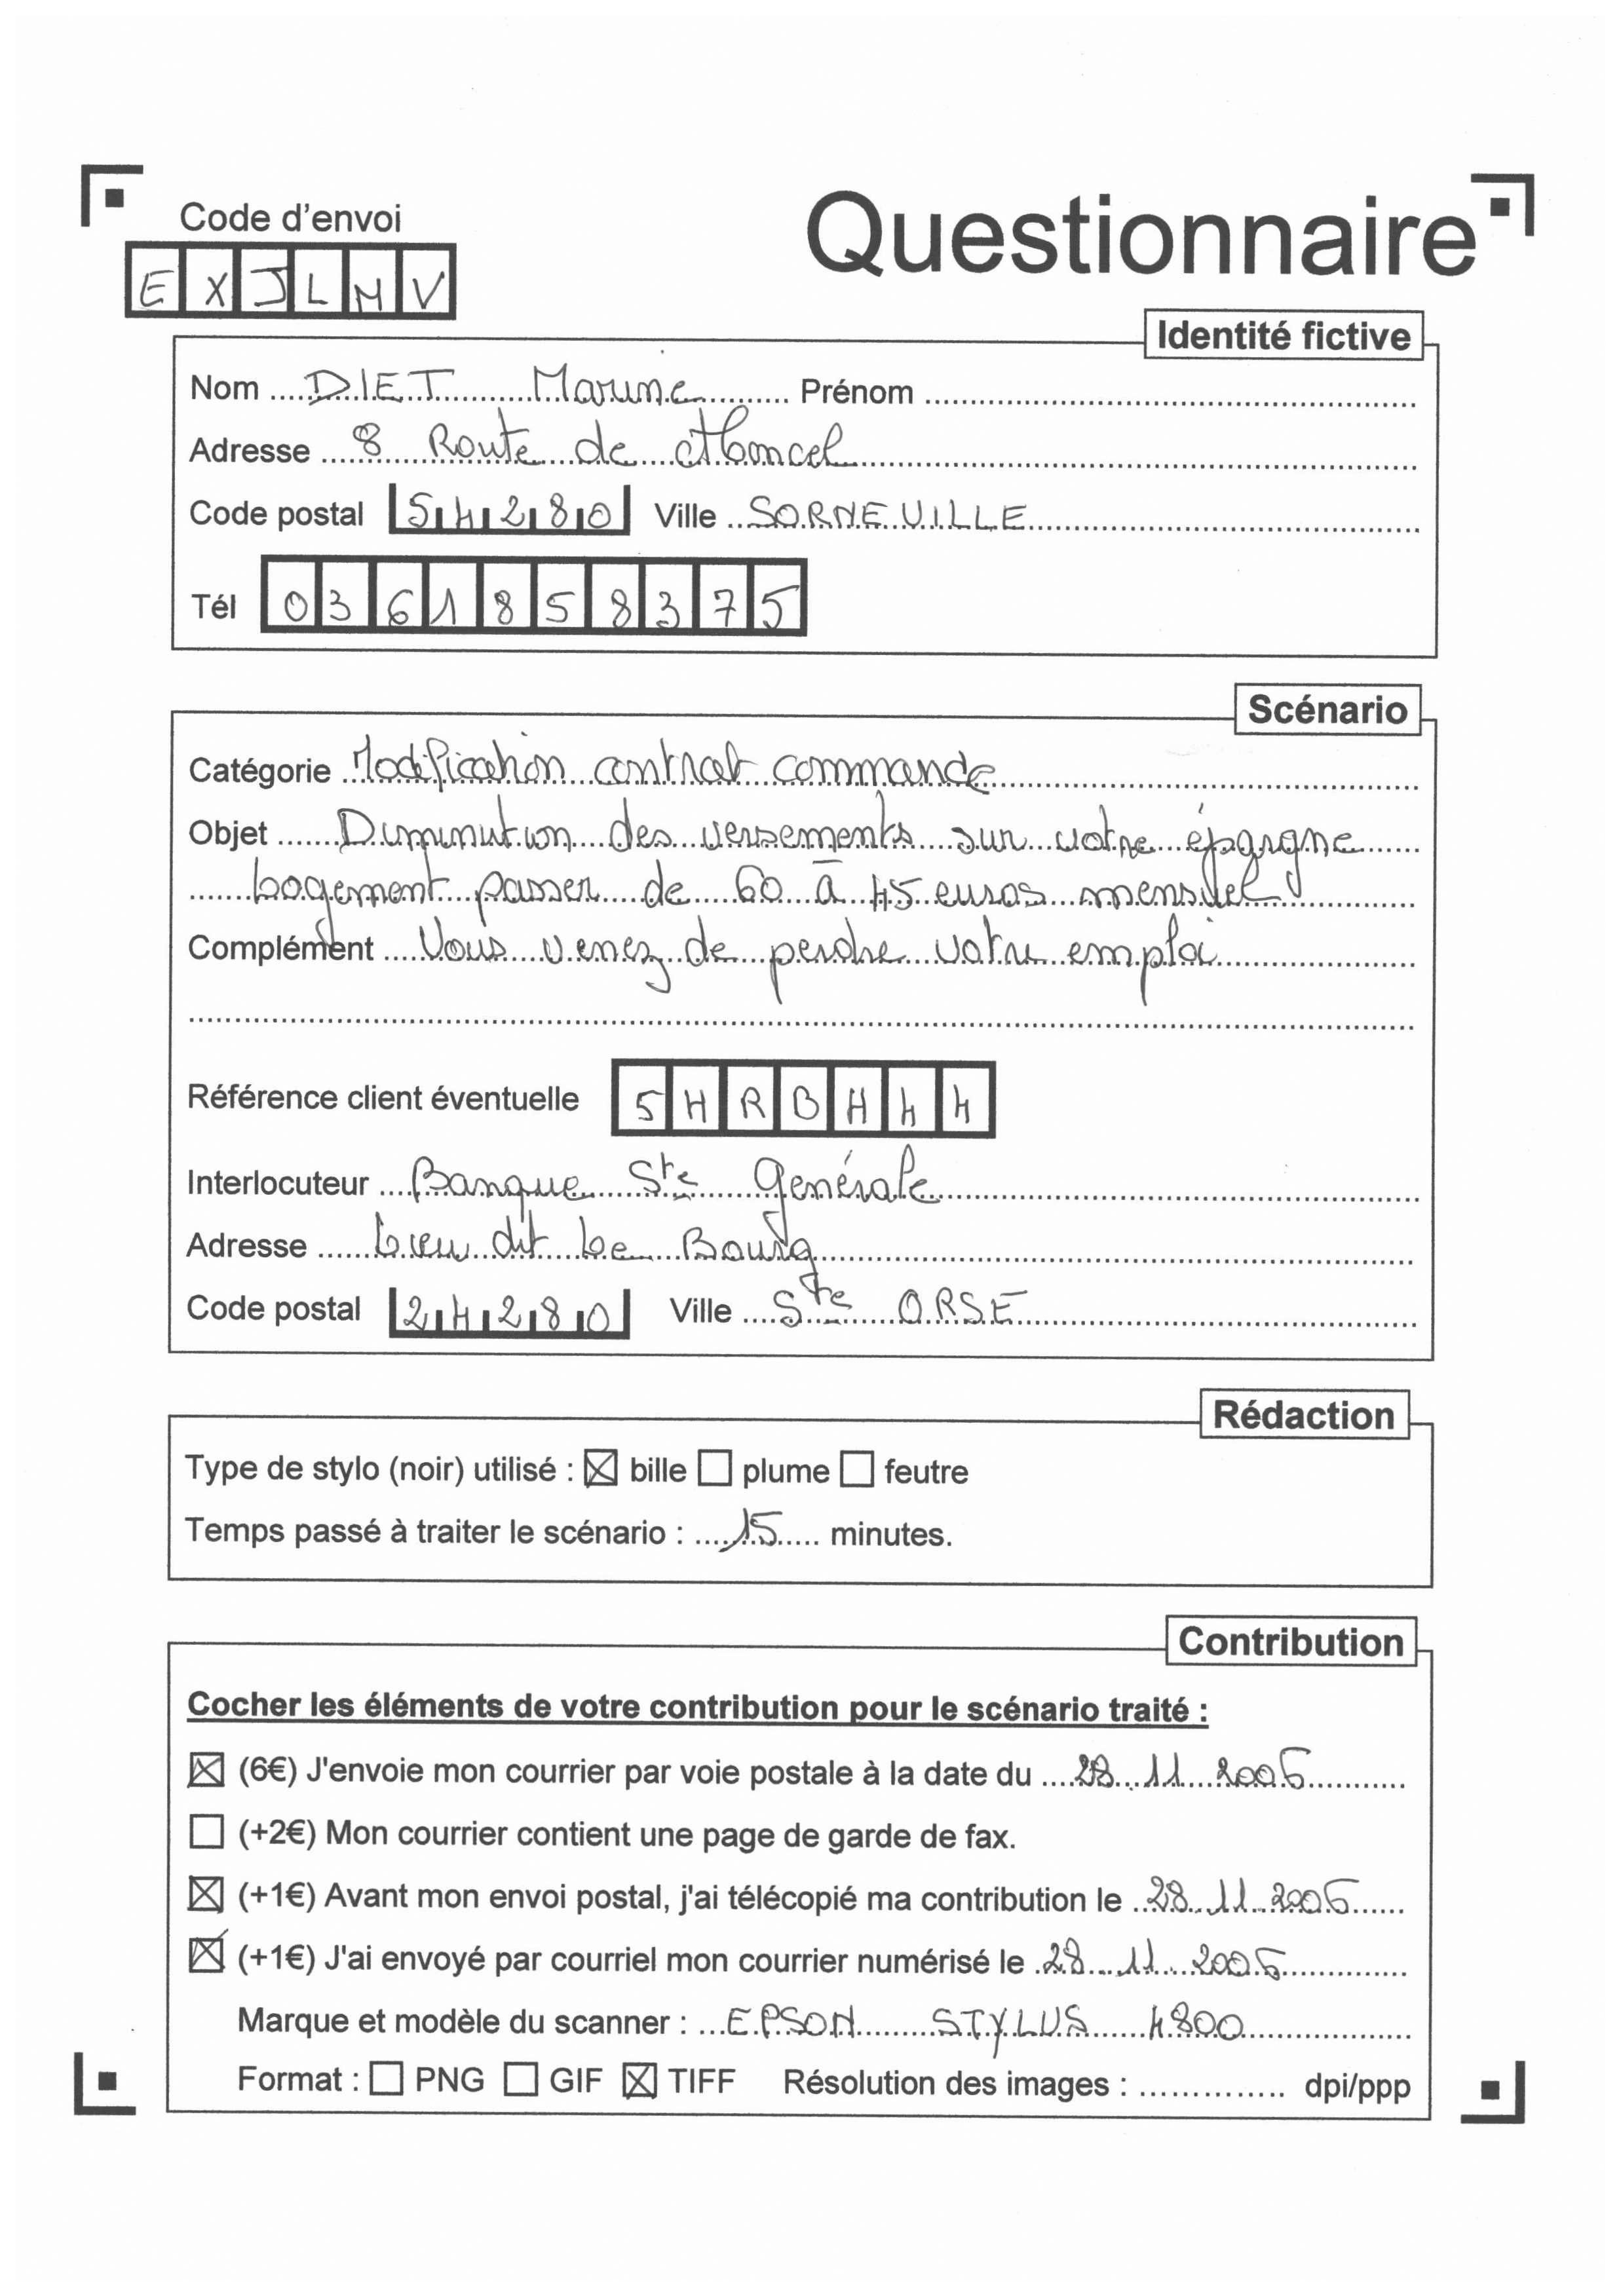 Code d'envoi
Questionnaire
E X J L M V
Identité fictive
Nom DIET Marine Prénom
Adresse 8 Route de
Code postal 54280 Ville SORNEVILLE
Tél 0361858375
Scénario
Catégorie Modification contrat commande
Objet Diminution des versements sur votre épargne
logement passer de 60 à 45 euros mensuel
Complément Vous venez de perdre votre emploi
Référence client éventuelle 5HRBH44
Interlocuteur Banque Sté Générale
Adresse Lieu dit Le Bourg
Code postal 24280 Ville Ste ORSE
Rédaction
Type de stylo (noir) utilisé : bille plume feutre
Temps passé à traiter le scénario : 15 minutes.
Contribution
Cocher les éléments de votre contribution pour le scénario traité :
(6€) J'envoie mon courrier par voie postale à la date du 28 11 2006
(+2€) Mon courrier contient une page de garde de fax.
(+1€) Avant mon envoi postal, j'ai télécopié ma contribution le 28 11 2006
(+1€) J'ai envoyé par courriel mon courrier numérisé le 28 11 2006
Marque et modèle du scanner : EPSON STYLUS 4800
Format : PNG GIF TIFF Résolution des images : dpi/ppp